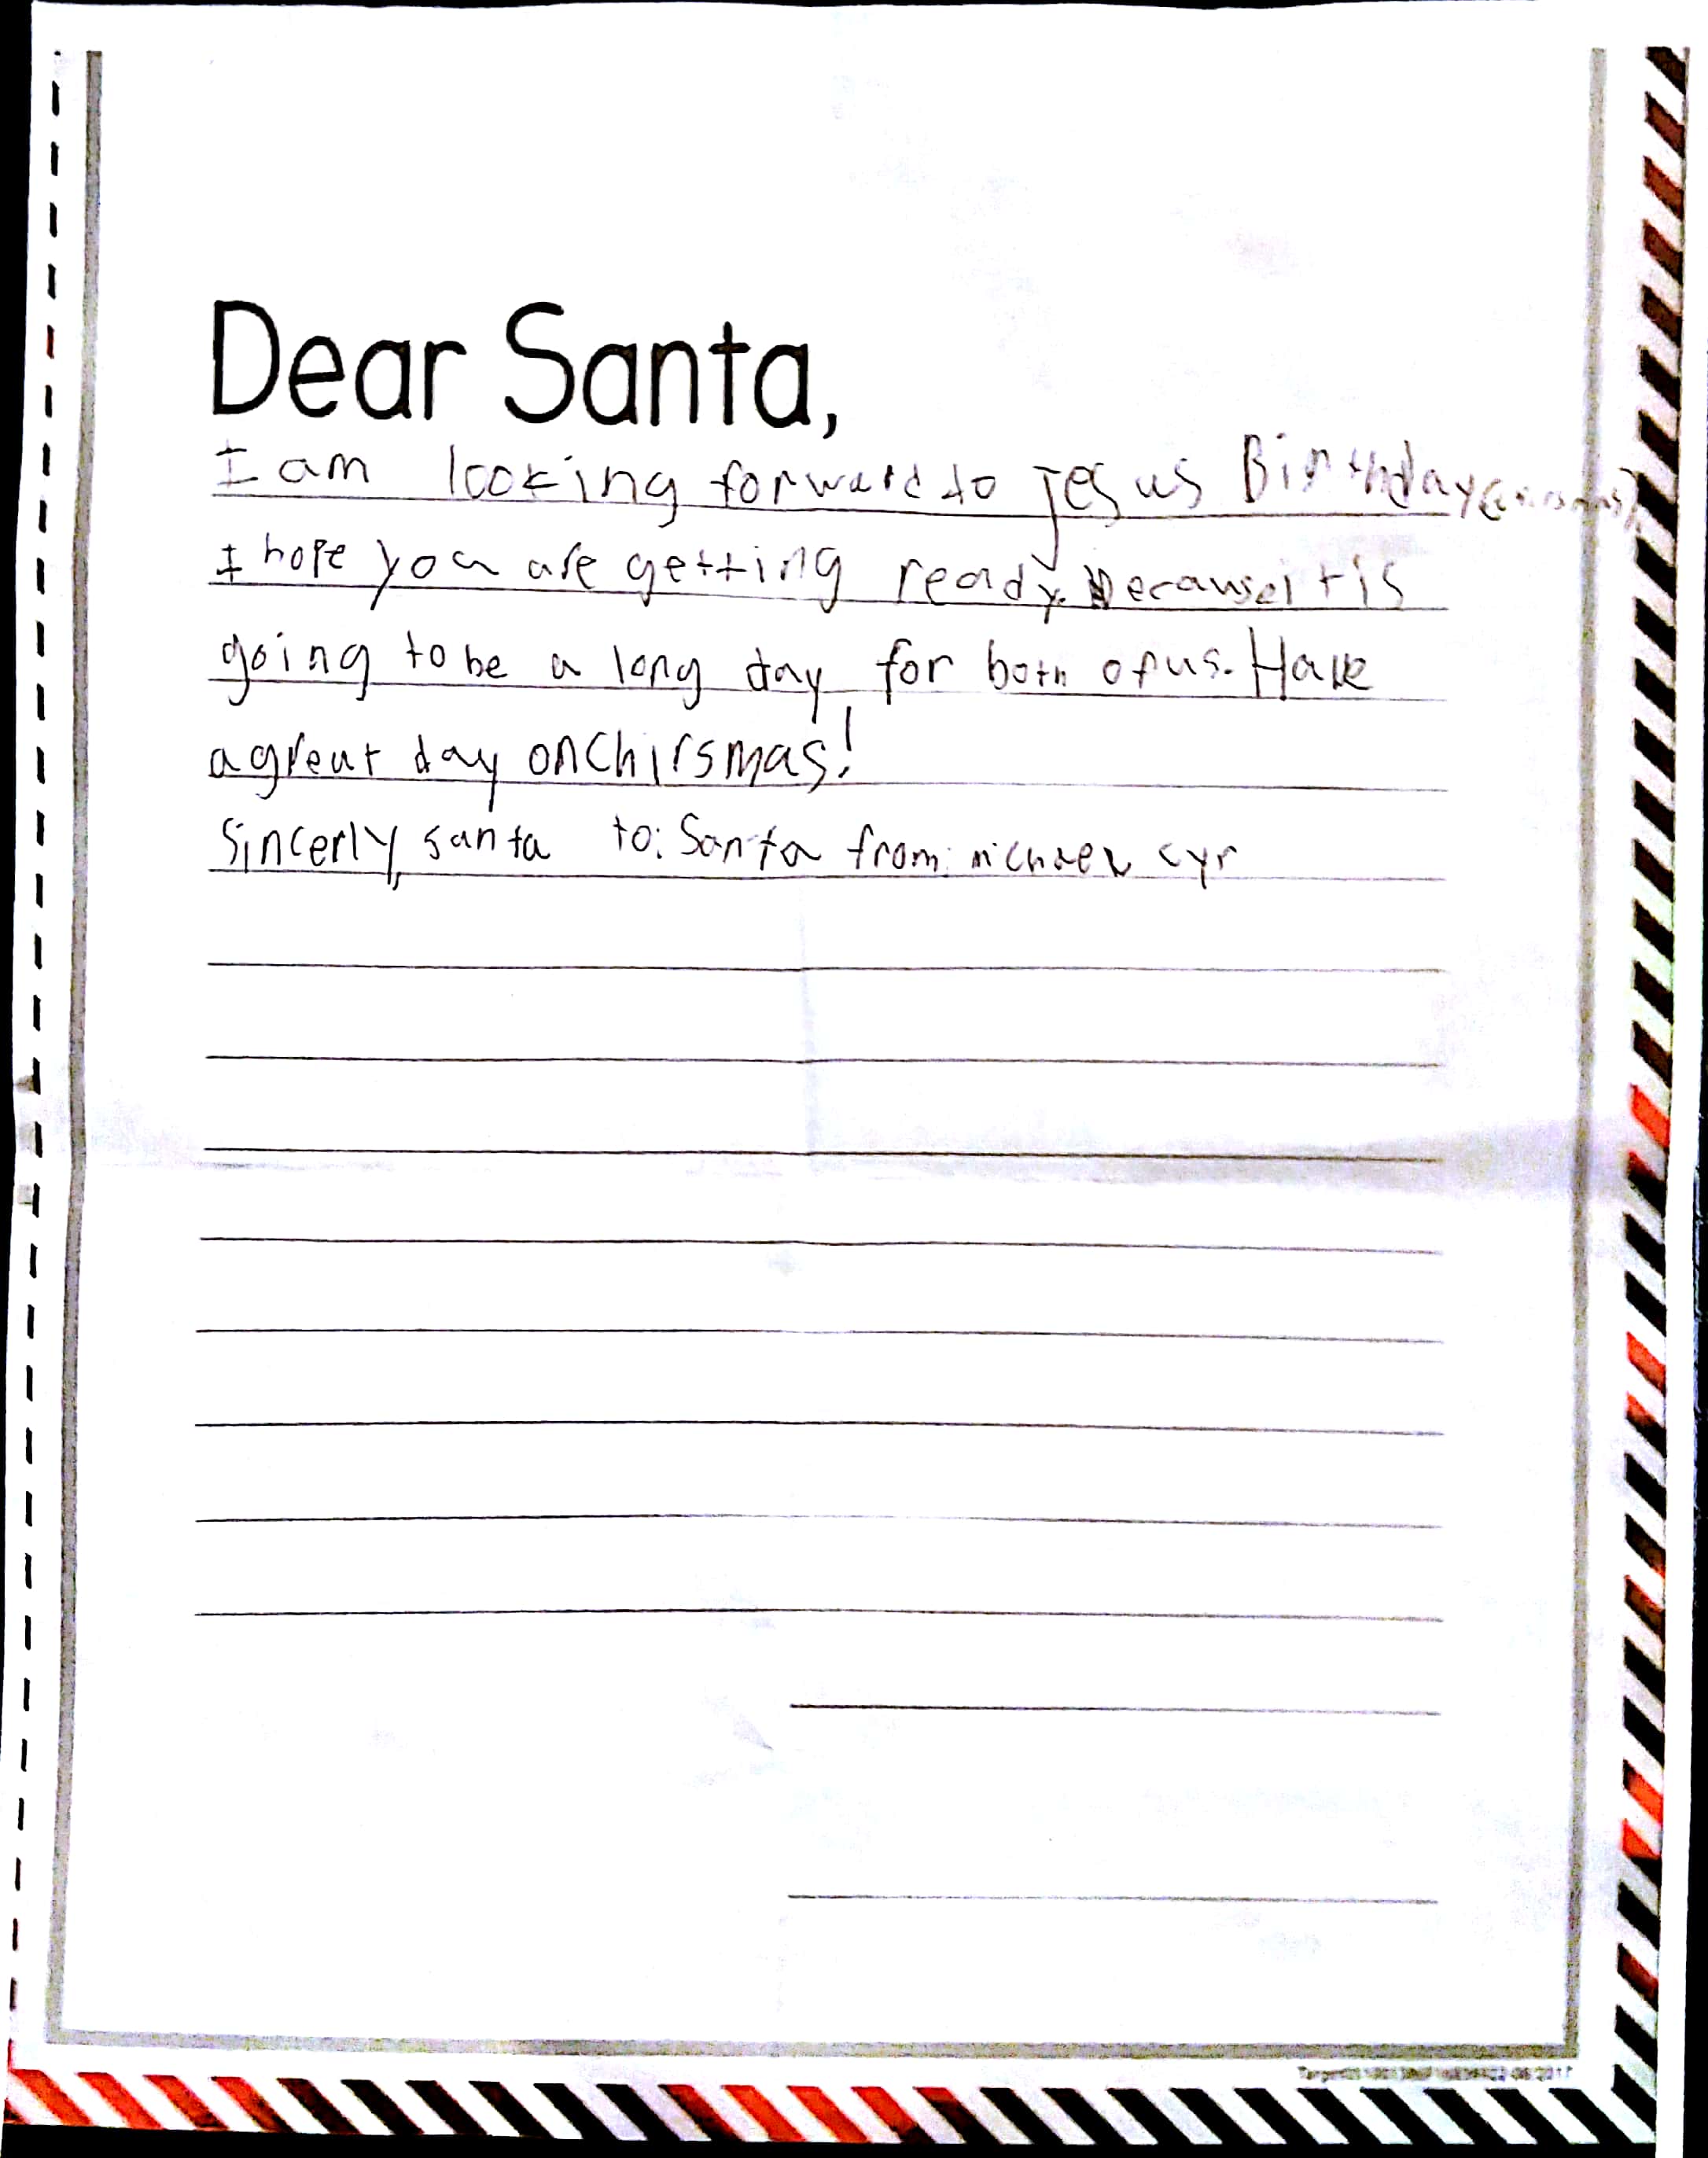 Dear Santa,
I am looking forward to jesus Birthday
I hope you are getting ready. Because it is
going to be a long day for both of us. Have
a great day on Chirsmas!
Sincerly, santa to: Santa from: michael cyr